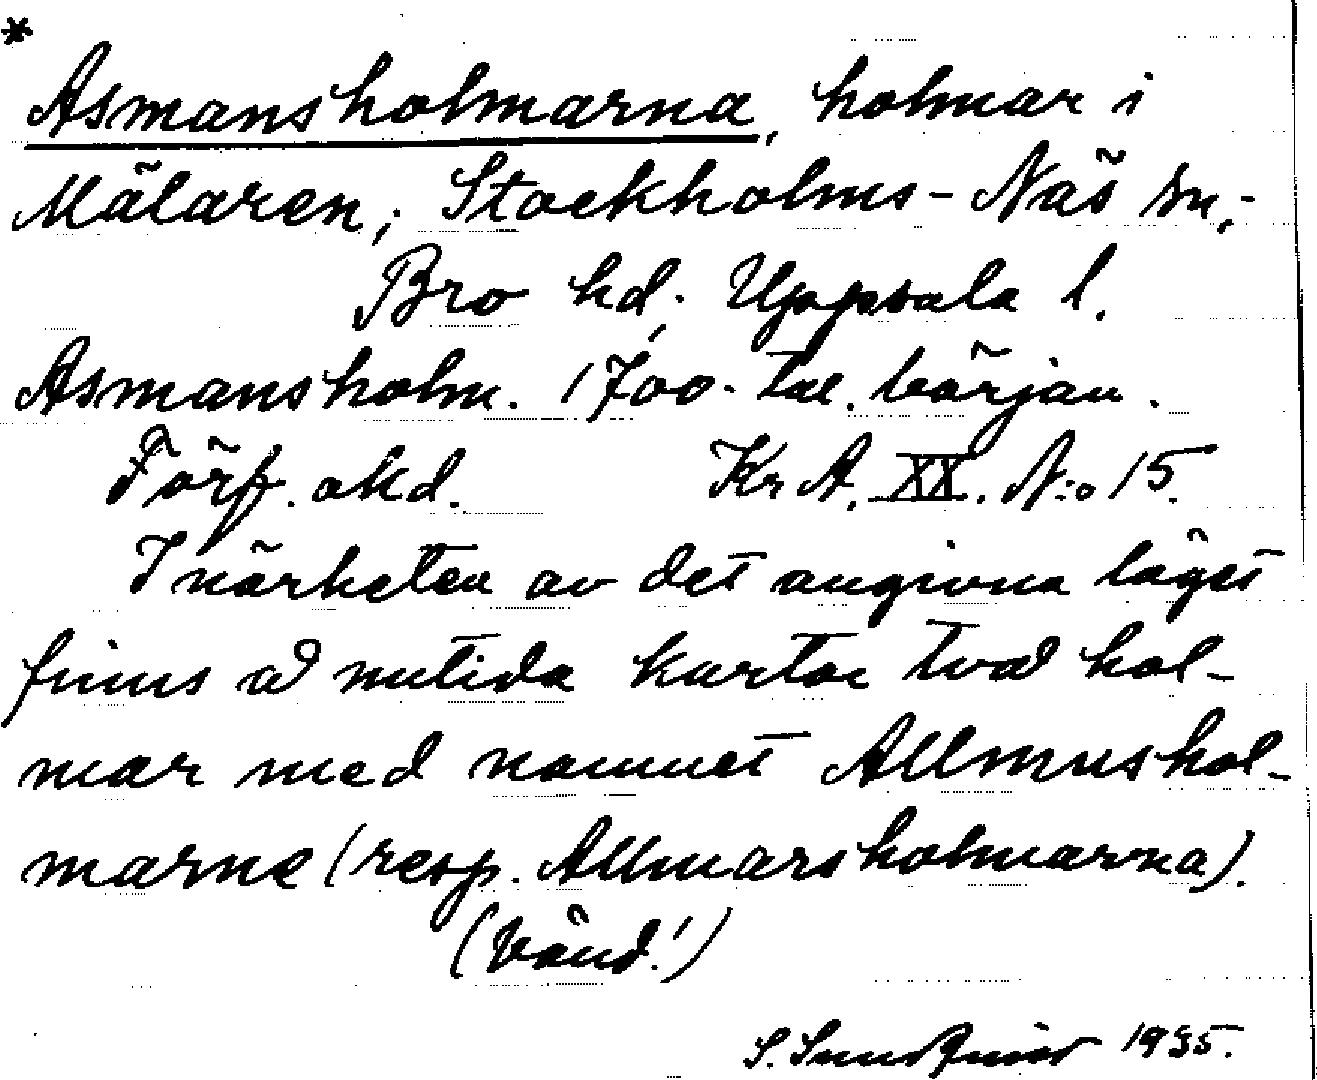 *
Asmansholmarna, holmar i
Mälaren; Stockholms-Näs sn,-
Bro hd. Uppsala l.
Asmansholm. 1700-tal. början.
Förf. okd. Kr A. XX. N:o 15.
I närheten av det angivna läget
finns å nutida kartor två hol-
mar med namnet Allmushol-
marne (resp. Allmarsholmarna).
(Vänd!)
S. 1935.